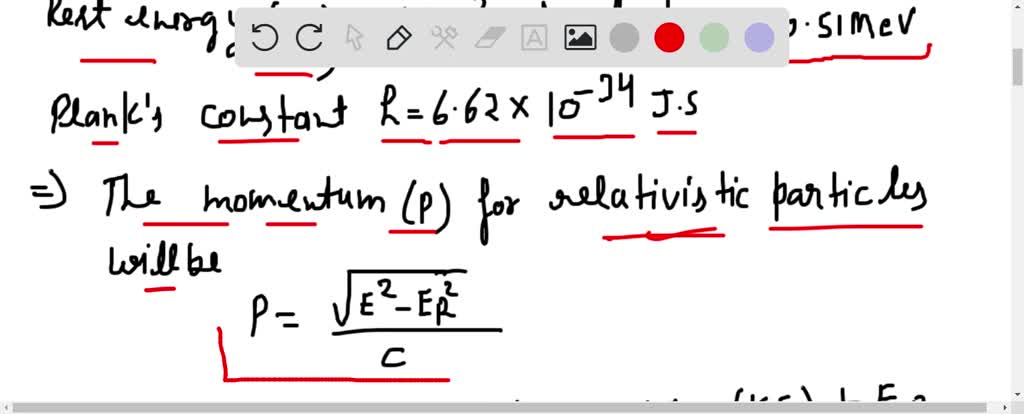 Rest energy 0.51MeV
Plank's constant h = 6.62 × 10^-34 J.S
⇒ The momentum (P) for relativistic particles
will be
P = √(E² - ER²) / C